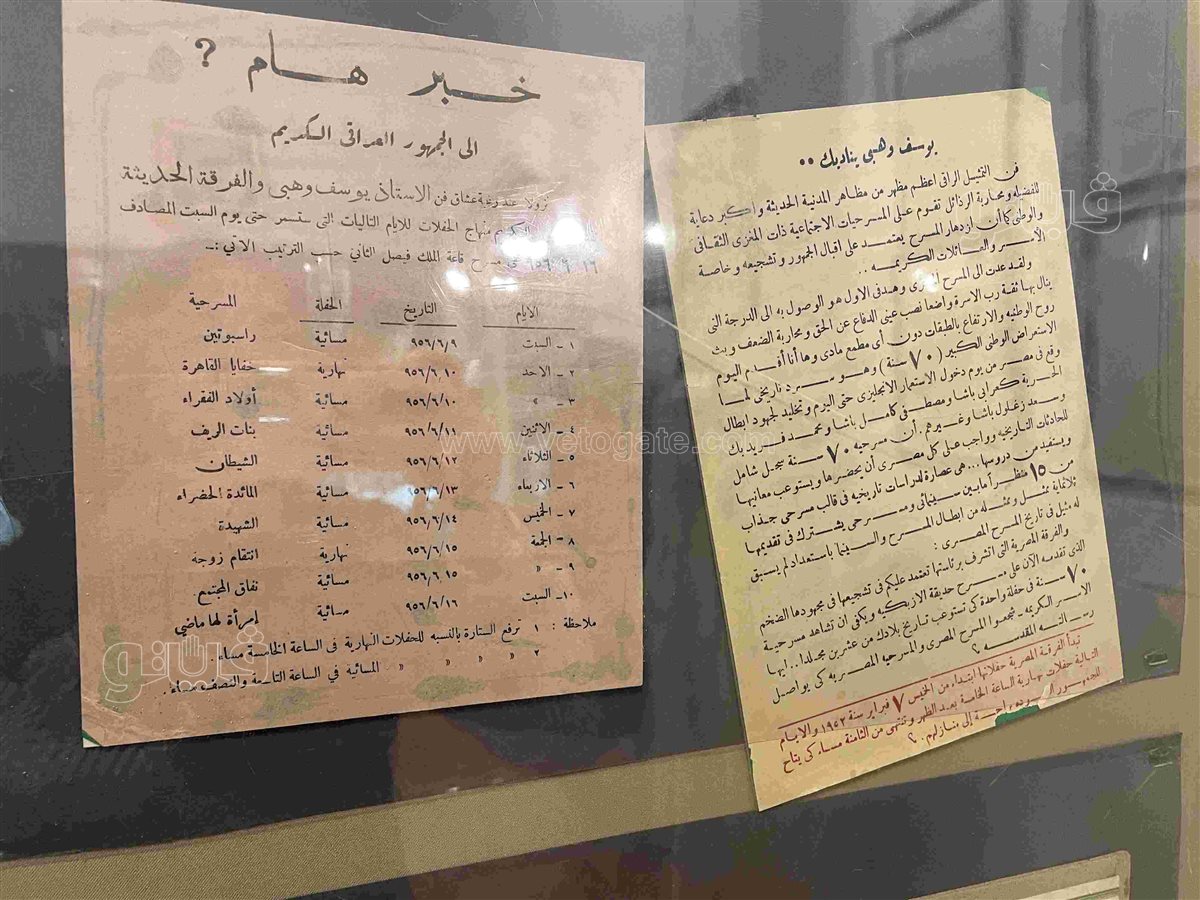 خبر هام ?
الى الجمهور العراقى الكريم
نزولا عند رغبة عشاق فن الاستاذ يوسف وهبى والفرقة الحديثة
الكريم منهاج الحفلات للايام التاليات التى ستستمر حتى يوم السبت المصادف
مسرح قاعة الملك فيصل الثاني حسب الترتيب الاتي :ـ
الايام التاريخ الحفلة المسرحية
١ - السبت ٩٥٦/٦/٩ مسائية راسبوتين
٢ - الاحد ٩٥٦/٦/١٠ نهارية خفايا القاهرة
٣ - » ٩٥٦/٦/١٠ مسائية أولاد الفقراء
٤ - الاثنين ٩٥٦/٦/١١ مسائية بنات الريف
٥ - الثلاثاء ٩٥٦/٦/١٢ مسائية الشيطان
٦ - الاربعاء ٩٥٦/٦/١٣ مسائية المائدة الخضراء
٧ - الخميس ٩٥٦/٦/١٤ مسائية الشهيدة
٨ - الجمعة ٩٥٦/٦/١٥ نهارية انتقام زوجه
٩ - » ٩٥٦/٦/١٥ مسائية نفاق المجتمع
١٠ - السبت ٩٥٦/٦/١٦ مسائية إمرأة لها ماضي
ملاحظة : ١ ترفع الستارة بالنسبه للحفلات النهارية فى الساعة الخامسة مساء .
٢ » » » » المسائية في الساعة التاسعة والنصف مساء .
يوسف وهبى يناديك ..
فن التمثيل الراقى اعظم مظهر من مظاهر المدنية الحديثة واكبر دعاية
للفضيله ومحاربة الرذائل تقوم على المسرحيات الاجتماعية ذات المغزى الثقافى
والوطنى كما أن ازدهار المسرح يعتمد على اقبال الجمهور وتشجيعه وخاصة
الأسر والعائلات الكريمه ..
ولقد عدت الى المسرح المصرى وهدفى الاول هو الوصول به الى الدرجة التى
ينال بها ثقة رب الاسرة واضعا نصب عينى الدفاع عن الحق ومحاربة الضعف وبث
روح الوطنيه والارتفاع بالطبقات دون أى مطمع مادى وها أنا أقدم اليوم
الاستعراض الوطنى الكبير ( ٧٠ سنة ) وهو سرد تاريخى لما
وقع فى مصر من يوم دخول الاستعمار الانجليزى حتى اليوم وتخليد لجهود ابطال
الحرية كعرابى باشا ومصطفى كامل باشا ومحمد فريد بك
وسعد زغلول باشا وغيرهم . أن مسرحيه ٧٠ سنة سجل شامل
للحادثات التاريخيه وواجب على كل مصرى أن يحضرها ويستوعب معانيها
ويستفيد من دروسها ... هى عصارة لدراسات تاريخيه فى قالب مسرحى جذاب
من ١٥ منظراً مابين سينمائى ومسرحى يشترك فى تقديمها
ثلاثماية ممثل وممثله من ابطال المسرح والسينما باستعداد لم يسبق
له مثيل فى تاريخ المسرح المصرى :
والفرقة المصرية التى اتشرف برئاستها تعتمد عليكم فى تشجيعها فى مجهودها الضخم
الذى تقدمه الآن على مسرح حديقة الازبكيه ويكفى ان تشاهد مسرحية
٧٠ سنة فى حفلة واحدة كى تستوعب تاريخ بلادك من عشرين مجلدا .. ايها
الاسر الكريمه .. شجعوا المسرح المصرى والمسرحيه المصريه كى يواصل
رسالته المقدسه ؟
تبدأ الفرقة المصرية حفلاتها ابتداء من الخميس ٧ فبراير سنة ١٩٥٢ والايام
التالية حفلات نهارية الساعة الخامسة بعد الظهر وتنتهى من الثامنة مساء كى يتاح
للجمهور العودة راحة إلى منازلهم . ؟
www.vetogate.com
فيتو
فيتو